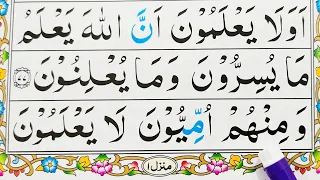 اَوَلَا يَعْلَمُوْنَ اَنَّ اللهَ يَعْلَمُ
مَا يُسِرُّوْنَ وَمَا يُعْلِنُوْنَ ۝۷۷
وَمِنْهُمْ اُمِّيُّوْنَ لَا يَعْلَمُوْنَ
منزل۱